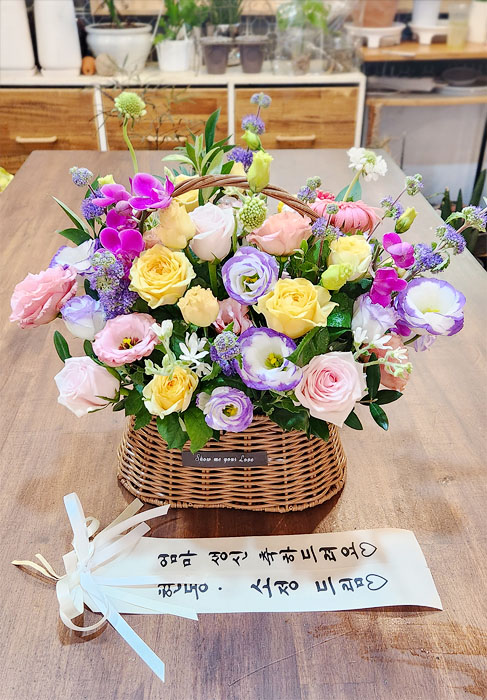 Show me your Love
엄마 생신 축하드려요♡
현동. 소정 드림♡